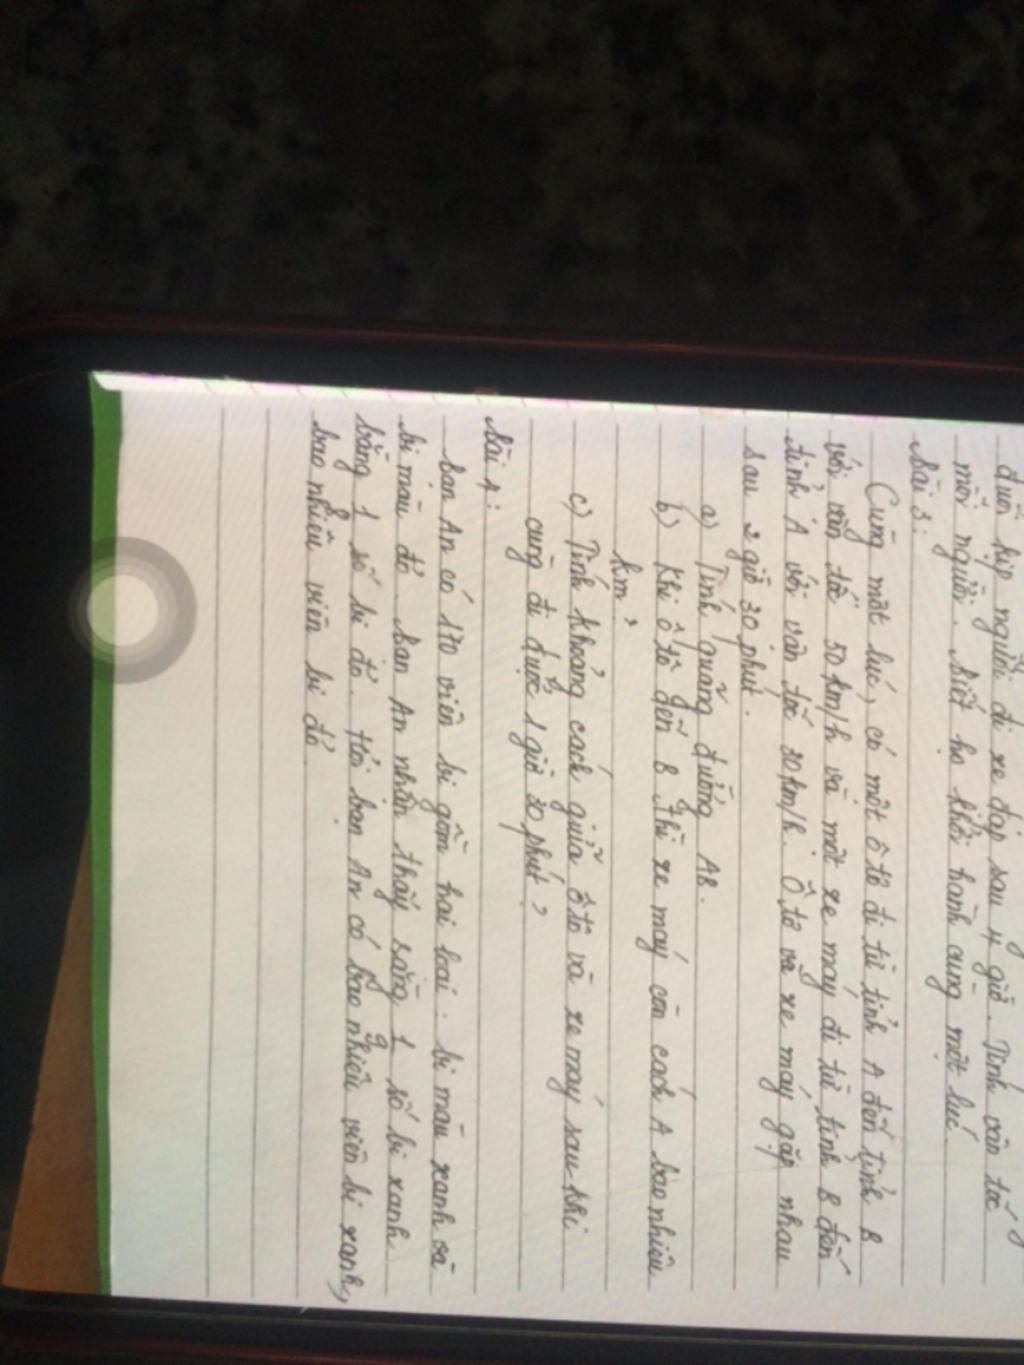 đuổi kịp người đi xe đạp sau 4 giờ. Tính vận tốc
mỗi người. Biết họ khởi hành cùng một lúc.
Bài 3:
Cùng một lúc, có một ô tô đi từ tỉnh A đến tỉnh B
với vận tốc 50 km/h và một xe máy đi từ tỉnh B đến
tỉnh A với vận tốc 30km/h. Ô tô và xe máy gặp nhau
sau 2 giờ 30 phút.
a) Tính quãng đường AB.
b) Khi ô tô đến B thì xe máy còn cách A bao nhiêu
km?
c) Tính khoảng cách giữa ô tô và xe máy sau khi
cùng đi được 1 giờ 30 phút?
Bài 4:
Bạn An có 170 viên bi gồm hai loại: bi màu xanh và
bi màu đỏ. Bạn An nhận thấy rằng 1/9 số bi xanh
bằng 1/8 số bi đỏ. Hỏi bạn An có bao nhiêu viên bi xanh,
bao nhiêu viên bi đỏ.